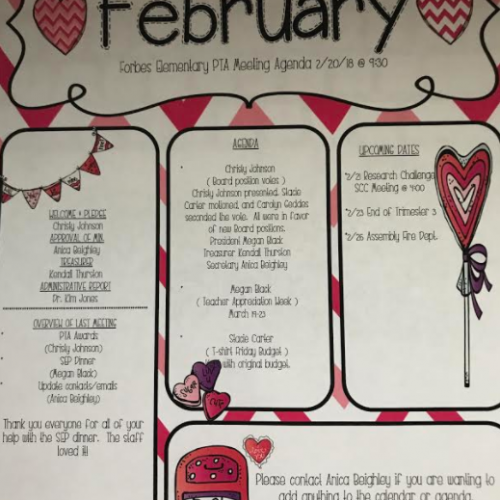 February
Forbes Elementary PTA Meeting Agenda 2/20/18 @ 9:30
WELCOME & PLEDGE
Christy Johnson
APPROVAL OF MIN.
Anica Beighley
TREASURER
Kendall Thurston
ADMINISTRATIVE REPORT
Dr. Kim Jones
OVERVIEW OF LAST MEETING
PTA Awards
(Christy Johnson)
SEP Dinner
(Megan Black)
Update contacts/emails
(Anica Beighley)
Thank you everyone for all of your
help with the SEP dinner. The staff
loved it!
AGENDA
Christy Johnson
( Board position votes )
Christy Johnson presented. Stacie
Carter motioned, and Carolyn Geddes
seconded the vote. All were in favor
of new Board positions.
President Megan Black
Treasurer Kendall Thurston
Secretary Anica Beighley
Megan Black
( Teacher Appreciation Week )
March 19-23
Stacie Carter
( T-shirt Friday Budget )
with original budget.
UPCOMING DATES
*2/21 Research Challenge
SCC Meeting @ 4:00
*2/23 End of Trimester 3
*2/26 Assembly Fire Dept.
Please contact Anica Beighley if you are wanting to
add anything to the calendar or agenda.